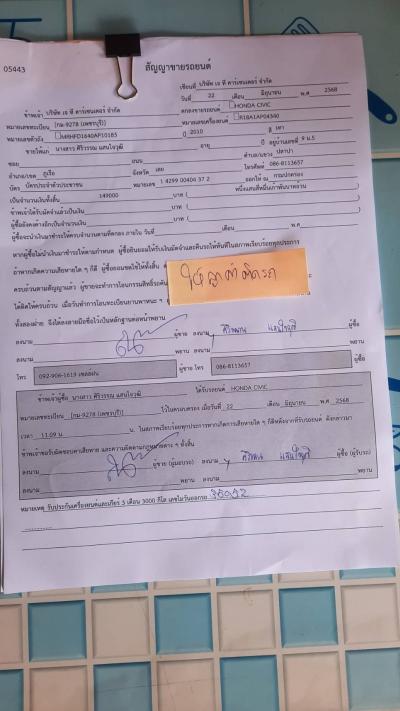 05443
สัญญาขายรถยนต์
เขียนที่ บริษัท เจ ที คาร์เซนเตอร์ จำกัด
วันที่ 22 เดือน มิถุนายน พ.ศ 2568
ข้าพเจ้า บริษัท เจ ที คาร์เซนเตอร์ จำกัด ตกลงขายรถยนต์ HONDA CIVIC
หมายเลขทะเบียน กม-9278 (เพชรบุรี) หมายเลขเครื่องยนต์ R18A1AP04340
หมายเลขตัวถัง MRHFD1640AP10185 ปี 2010 สี เทา
ขายให้แก่ นางสาว ศิริวรรณ แสนใจวุฒิ อายุ ปี อยู่บ้านเลขที่ 9 ม.5
ซอย ถนน ตำบล/แขวง ปลาบ่า
อำเภอ/เขต ภูเรือ จังหวัด เลย โทรศัพท์ 086-8113657
บัตร บัตรประจำตัวประชาชน หมายเลข 1 4299 00404 37 2 ออกให้ ณ กรมปกครอง
เป็นจำนวนเงินทั้งสิ้น 149000 บาท ( หนึ่งแสนสี่หมื่นเก้าพันบาทถ้วน )
ข้าพเจ้าได้รับมัดจำแล้วเป็นเงิน บาท ( )
ผู้ซื้อยังคงค้างอีกเป็นจำนวนเงิน บาท ( )
ผู้ซื้อจะนำเงินมาชำระให้ครบจำนวนตามที่ตกลง ภายใน วันที่ เดือน พ.ศ
หากผู้ซื้อไม่นำเงินมาชำระตามกำหนด ผู้ซื้อยินยอมให้ริบเงินมัดจำและคืนรถให้ทันทีในสภาพเรียบร้อยทุกประการ
ถ้าหากเกิดความเสียหายใด ๆ ก็ดี ผู้ซื้อยอมชดใช้ให้ทั้งสิ้น
ครบถ้วนตามสัญญาแล้ว ผู้ขายจะทำการโอนกรรมสิทธิ์รถคัน
ได้ผิดให้ครบถ้วน เมื่อวันทำการโอนทะเบียนยานพาหนะ
ทั้งสองฝ่าย จึงได้ลงลายมือชื่อไว้เป็นหลักฐานต่อหน้าพยาน
ลงนาม ผู้ขาย ลงนาม ศิริวรรณ แสนใจวุฒิ ผู้ซื้อ
ลงนาม พยาน ลงนาม พยาน
โทร 092-906-1619 ผู้ขาย โทร 086-8113657 ผู้ซื้อ
ข้าพเจ้าผู้ซื้อ นางสาว ศิริวรรณ แสนใจวุฒิ ได้รับรถยนต์ HONDA CIVIC
หมายเลขทะเบียน กม-9278 (เพชรบุรี) ไว้ในครอบครอง เมื่อวันที่ 22 เดือน มิถุนายน พ.ศ 2568
เวลา 11.09 น. ในสภาพเรียบร้อยทุกประการหากเกิดการเสียหายใด ๆ ก็ดีหลังจากที่รับรถยนต์ ดังกล่าวมา
ข้าพเจ้าขอรับผิดชอบค่าเสียหาย และความผิดตามกฎหมายต่าง ๆ ทั้งสิ้น
ลงนาม ผู้ขาย (ผู้มอบรถ) ลงนาม ศิริวรรณ แสนใจวุฒิ ผู้ซื้อ (ผู้รับรถ)
ลงนาม พยาน ลงนาม พยาน
หมายเหตุ รับประกันเครื่องยนต์และเกียร์ 3 เดือน 3000 กิโล เลขไมล์วันออกรถ